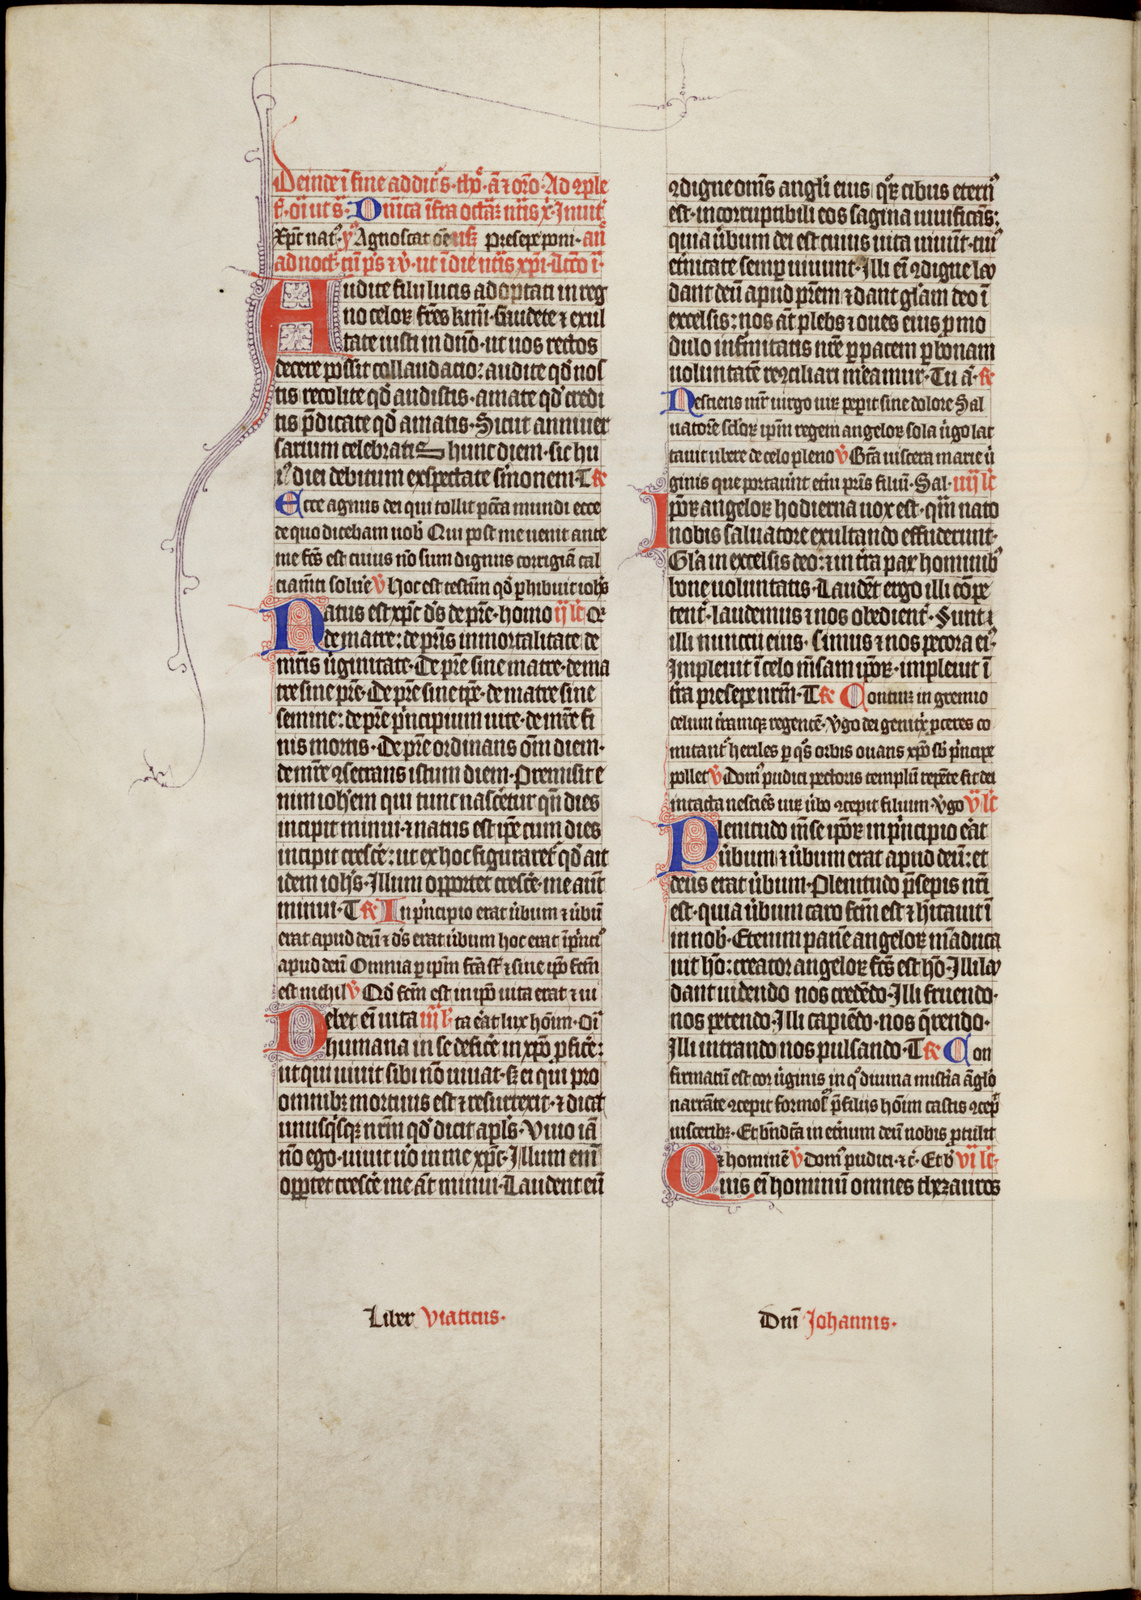 Deinde ī fine addit᷒ s. tho. ā ⁊ oro. Ad ꝯple
ut s. Dn̄ica īfra octā nt̄is x. Inuit
Xp̄c nat᷒. Agnoscat presepe poni. an̄
ad noct. cū p̄s ⁊ v̄. ut ī die nt̄is xp̄i. Lc̄co i.
Audite filij lucis adoptati in reg
no celoꝝ fr̄es kmī. Gaudete ⁊ exul
tate iusti in dn̄o. ut uos rectos
decere possit collaudacio: audite qd̓ nos
tis recolite qd̓ audistis. amate qd̓ credi
tis p̄dicate qd̓ amatis. Sicut anniuer
sarium celebratis hunc diem. sic hu
i᷒ diei debitum exspectate sm̄onem. T
Ecce agnus dei qui tollit pcc̄a mundi ecce
de quo dicebam uob̓ Qui post me uenit ante
me fc̄s est cuius nō sum dignus corrigiā cal
ciam̄ti soluē v̄ Hoc est testim̄ qd̓ phibuit ioh̄s
Natus est xp̄c dō̄s de pr̄e. homo ij lc̄
de matre: de pr̄is inmortalitate. de
mr̄is ūginitate. De pr̄e sine matre. de ma
tre sine pr̄e. De pr̄e sine tp̄e. de matre sine
semine: de pr̄e p̄ncipium uite. de mr̄e fi
nis mortis. De pr̄e ordinans om̄ diem.
de mr̄e ꝯsecrans istum diem. Premisit e
nim ioh̄em qui tunc nascēt̄ur qn̄ dies
incipit minui. ⁊ natus est ip̄e cum dies
incipit cresc̄e: ut ex hoc figuraret᷒ qd̓ ait
idem ioh̄s. Illum opportet cresc̄e. me aut̄
minui. T In p̄ncipio erat ūbum ⁊ ūbū
erat apud deū ⁊ dō̄s erat ūbum hoc erat ī p̄nci᷒
apud deū Omnia ꝑ ip̄m fc̄a sf̄ ⁊ sine ip̄o fc̄m
est nichil v̄ Qd̓ fc̄m est in ip̄o uita erat ⁊ ui
Debet eī uita iij lc̄ ta erat lux hōim. Oī
humana in se defic̄e in xp̄o ꝓfic̄e:
ut qui uiuit sibi nō uiuat. s̄ ei qui pro
omnibꝫ mortuus est ⁊ resurrexit. ⁊ dicat
unusq̓sqꝫ nr̄m qd̓ dicit apl̄s. Viuo iā
nō ego. uiuit ūo in me xp̄c. Illum enī
opportet cresc̄e me āt minui. Laudent eū
ꝯdigne om̄s angl̓i eius. qꝛ cibus etern᷒
est. incorruptibili eos sagina uiuificās:
quia ūbum dei est cuius uita uiuūt. cui᷒
et̄nitate semꝑ uiuunt. Illi eī ꝯdigne lau
dant deū apud pr̄em ⁊ dant gl̄am deo ī
excelsis: nos āt plebs ⁊ oues eius ꝑ mo
dulo infirmitatis nr̄e ꝑ pacem ꝑ bonam
uoluntatē recꝯciliari meamur. Tu ā.
Nesciens mr̄ uirgo uirꝫ peꝑit sine dolore Sal
uatorē sclōꝝ ip̄m regem angeloꝝ sola ūgo lac
tauit ubere de celo pleno v̄ Bt̄a uiscera marie ū
ginis que portauūt et̄ni pr̄is filiū. Sal. iiij lc̄
Ipoꝝ angeloꝝ hodierna uox est. qm̄ nato
nobis saluatore exultando effuderunt.
Gl̄a in excelsis deo: ⁊ in tr̄a pax hominib᷒
bone uoluntatis. Laudēt ergo illi ꝯpe
tent̄. laudemus ⁊ nos obedient̄. Sunt ⁊
illi nuncii eius. simus ⁊ nos pecora ei᷒.
Impleuit ī celo mn̄sam ipoꝝ. impleuit ī
tr̄a presepe nr̄m. T Continꝫ in gremio
celum tr̄amqꝫ regentē. v̄go dei genit̄x ꝓceres co
mitant᷒ heriles ꝑ qō̄s orbis ouans xp̄o sb̄ p̄ncipe
pollet v̄ Dom᷒ pudici pectoris templū repēte fit dei
intacta nesciēs uirꝫ ūbo ꝯcepit filium. v̄go v lc̄
Plenitudo mn̄se ipoꝝ in p̄ncipio erat
ūbum: ⁊ ūbum erat apud deū: et
deus erat ūbum. Plenitudo p̄sepis nr̄i
est. quia ūbum caro fc̄m est ⁊ hitauit ī
in nob̓. Etenim panē angeloꝝ māduca
uit hō: creator angeloꝝ fc̄s est hō. Illi lau
dant uidendo nos credēdo. Illi fruendo.
nos petendo. Illi capiēdo. nos q̄rendo.
Illi intrando nos pulsando. T Con
firmatum est cor ūginis in q̓ diuina mist̄ia āglo
narrāte ꝯcepit formos᷒ p̄ filijs hōim castis ꝯcep̄
uisceribꝫ. Et bn̄dc̄a in et̄num deū nobis ꝓtulit
⁊ hominē v̄ Dom᷒ pudici. ⁊c̄. Et b̄ vi lc̄.
Quis eī hominū omnes thezauros
Liber Viaticus. Dn̄i Johannis.